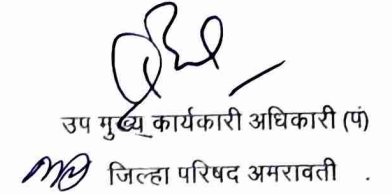 उप मुख्य कार्यकारी अधिकारी (पं)
जिल्हा परिषद अमरावती .